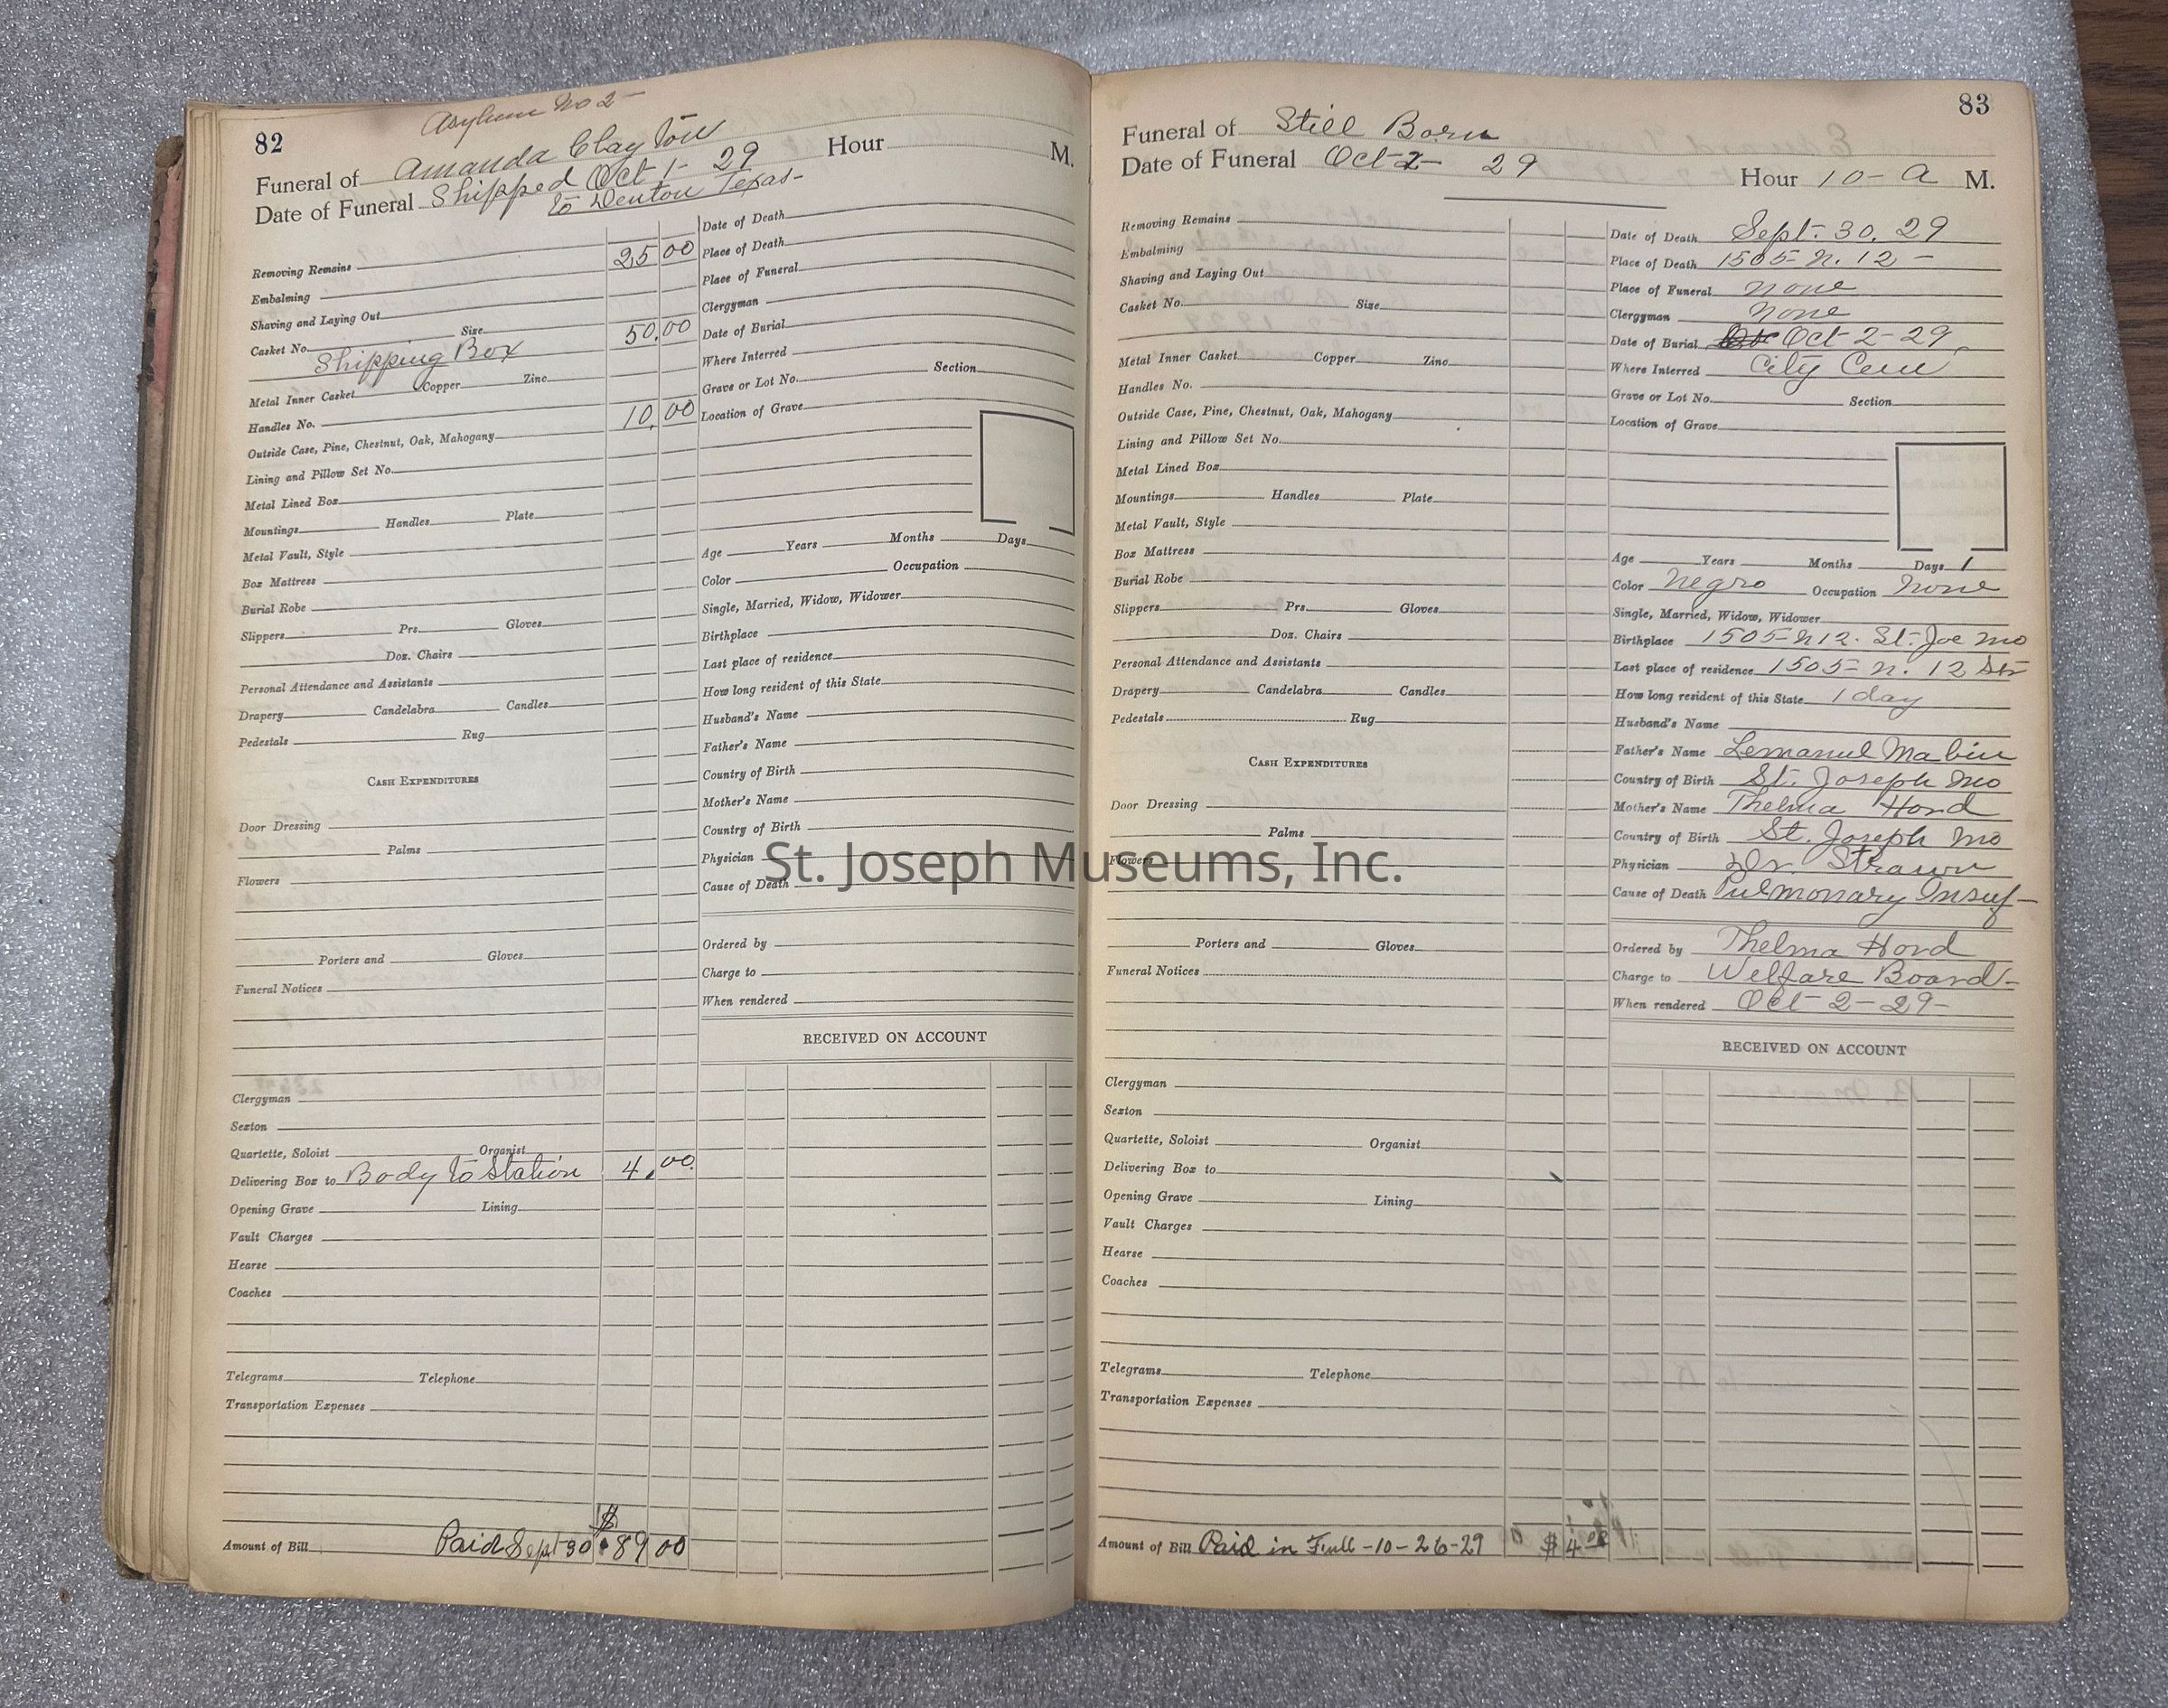 82
Asylum No 2-
Funeral of Amanda Clayton
Date of Funeral Shipped Oct 1- 29 Hour M.
to Denton Texas-
Removing Remains 25 00
Embalming
Shaving and Laying Out
Casket No. Size 50.00
Shipping Box
Metal Inner Casket Copper Zinc
Handles No. 10.00
Outside Case, Pine, Chestnut, Oak, Mahogany
Lining and Pillow Set No.
Metal Lined Box
Mountings Handles Plate
Metal Vault, Style
Box Mattress
Burial Robe
Slippers Prs. Gloves
Doz. Chairs
Personal Attendance and Assistants
Drapery Candelabra Candles
Pedestals Rug
CASH EXPENDITURES
Door Dressing
Palms
Flowers
Porters and Gloves
Funeral Notices
Clergyman
Sexton
Quartette, Soloist Organist
Delivering Box to Body to Station 4.00
Opening Grave Lining
Vault Charges
Hearse
Coaches
Telegrams Telephone
Transportation Expenses
$
Amount of Bill Paid Sept 30 89 00
Date of Death
Place of Death
Place of Funeral
Clergyman
Date of Burial
Where Interred
Grave or Lot No. Section
Location of Grave
Age Years Months Days
Color Occupation
Single, Married, Widow, Widower
Birthplace
Last place of residence
How long resident of this State
Husband's Name
Father's Name
Country of Birth
Mother's Name
Country of Birth
Physician
Cause of Death
Ordered by
Charge to
When rendered
RECEIVED ON ACCOUNT
St. Joseph Museums, Inc.
83
Funeral of Still Born
Date of Funeral Oct 2- 29 Hour 10- A M.
Removing Remains
Embalming
Shaving and Laying Out
Casket No. Size
Metal Inner Casket Copper Zinc
Handles No.
Outside Case, Pine, Chestnut, Oak, Mahogany
Lining and Pillow Set No.
Metal Lined Box
Mountings Handles Plate
Metal Vault, Style
Box Mattress
Burial Robe
Slippers Prs. Gloves
Doz. Chairs
Personal Attendance and Assistants
Drapery Candelabra Candles
Pedestals Rug
CASH EXPENDITURES
Door Dressing
Palms
Flowers
Porters and Gloves
Funeral Notices
Clergyman
Sexton
Quartette, Soloist Organist
Delivering Box to
Opening Grave Lining
Vault Charges
Hearse
Coaches
Telegrams Telephone
Transportation Expenses
Amount of Bill Paid in Full -10-26-29 $4 00
Date of Death Sept. 30. 29
Place of Death 1505- N. 12 -
Place of Funeral None
Clergyman None
Date of Burial Oct-2-29
Where Interred City Cem
Grave or Lot No. Section
Location of Grave
Age Years Months Days 1
Color Negro Occupation None
Single, Married, Widow, Widower
Birthplace 1505-N 12. St. Joe Mo
Last place of residence 1505- N. 12 Str
How long resident of this State 1 day
Husband's Name
Father's Name Lemanuel Mabin
Country of Birth St. Joseph Mo
Mother's Name Thelma Hord
Country of Birth St. Joseph Mo
Physician Dr. Strawn
Cause of Death Pulmonary Insuf-
Ordered by Thelma Hord
Charge to Welfare Board-
When rendered Oct-2-29-
RECEIVED ON ACCOUNT